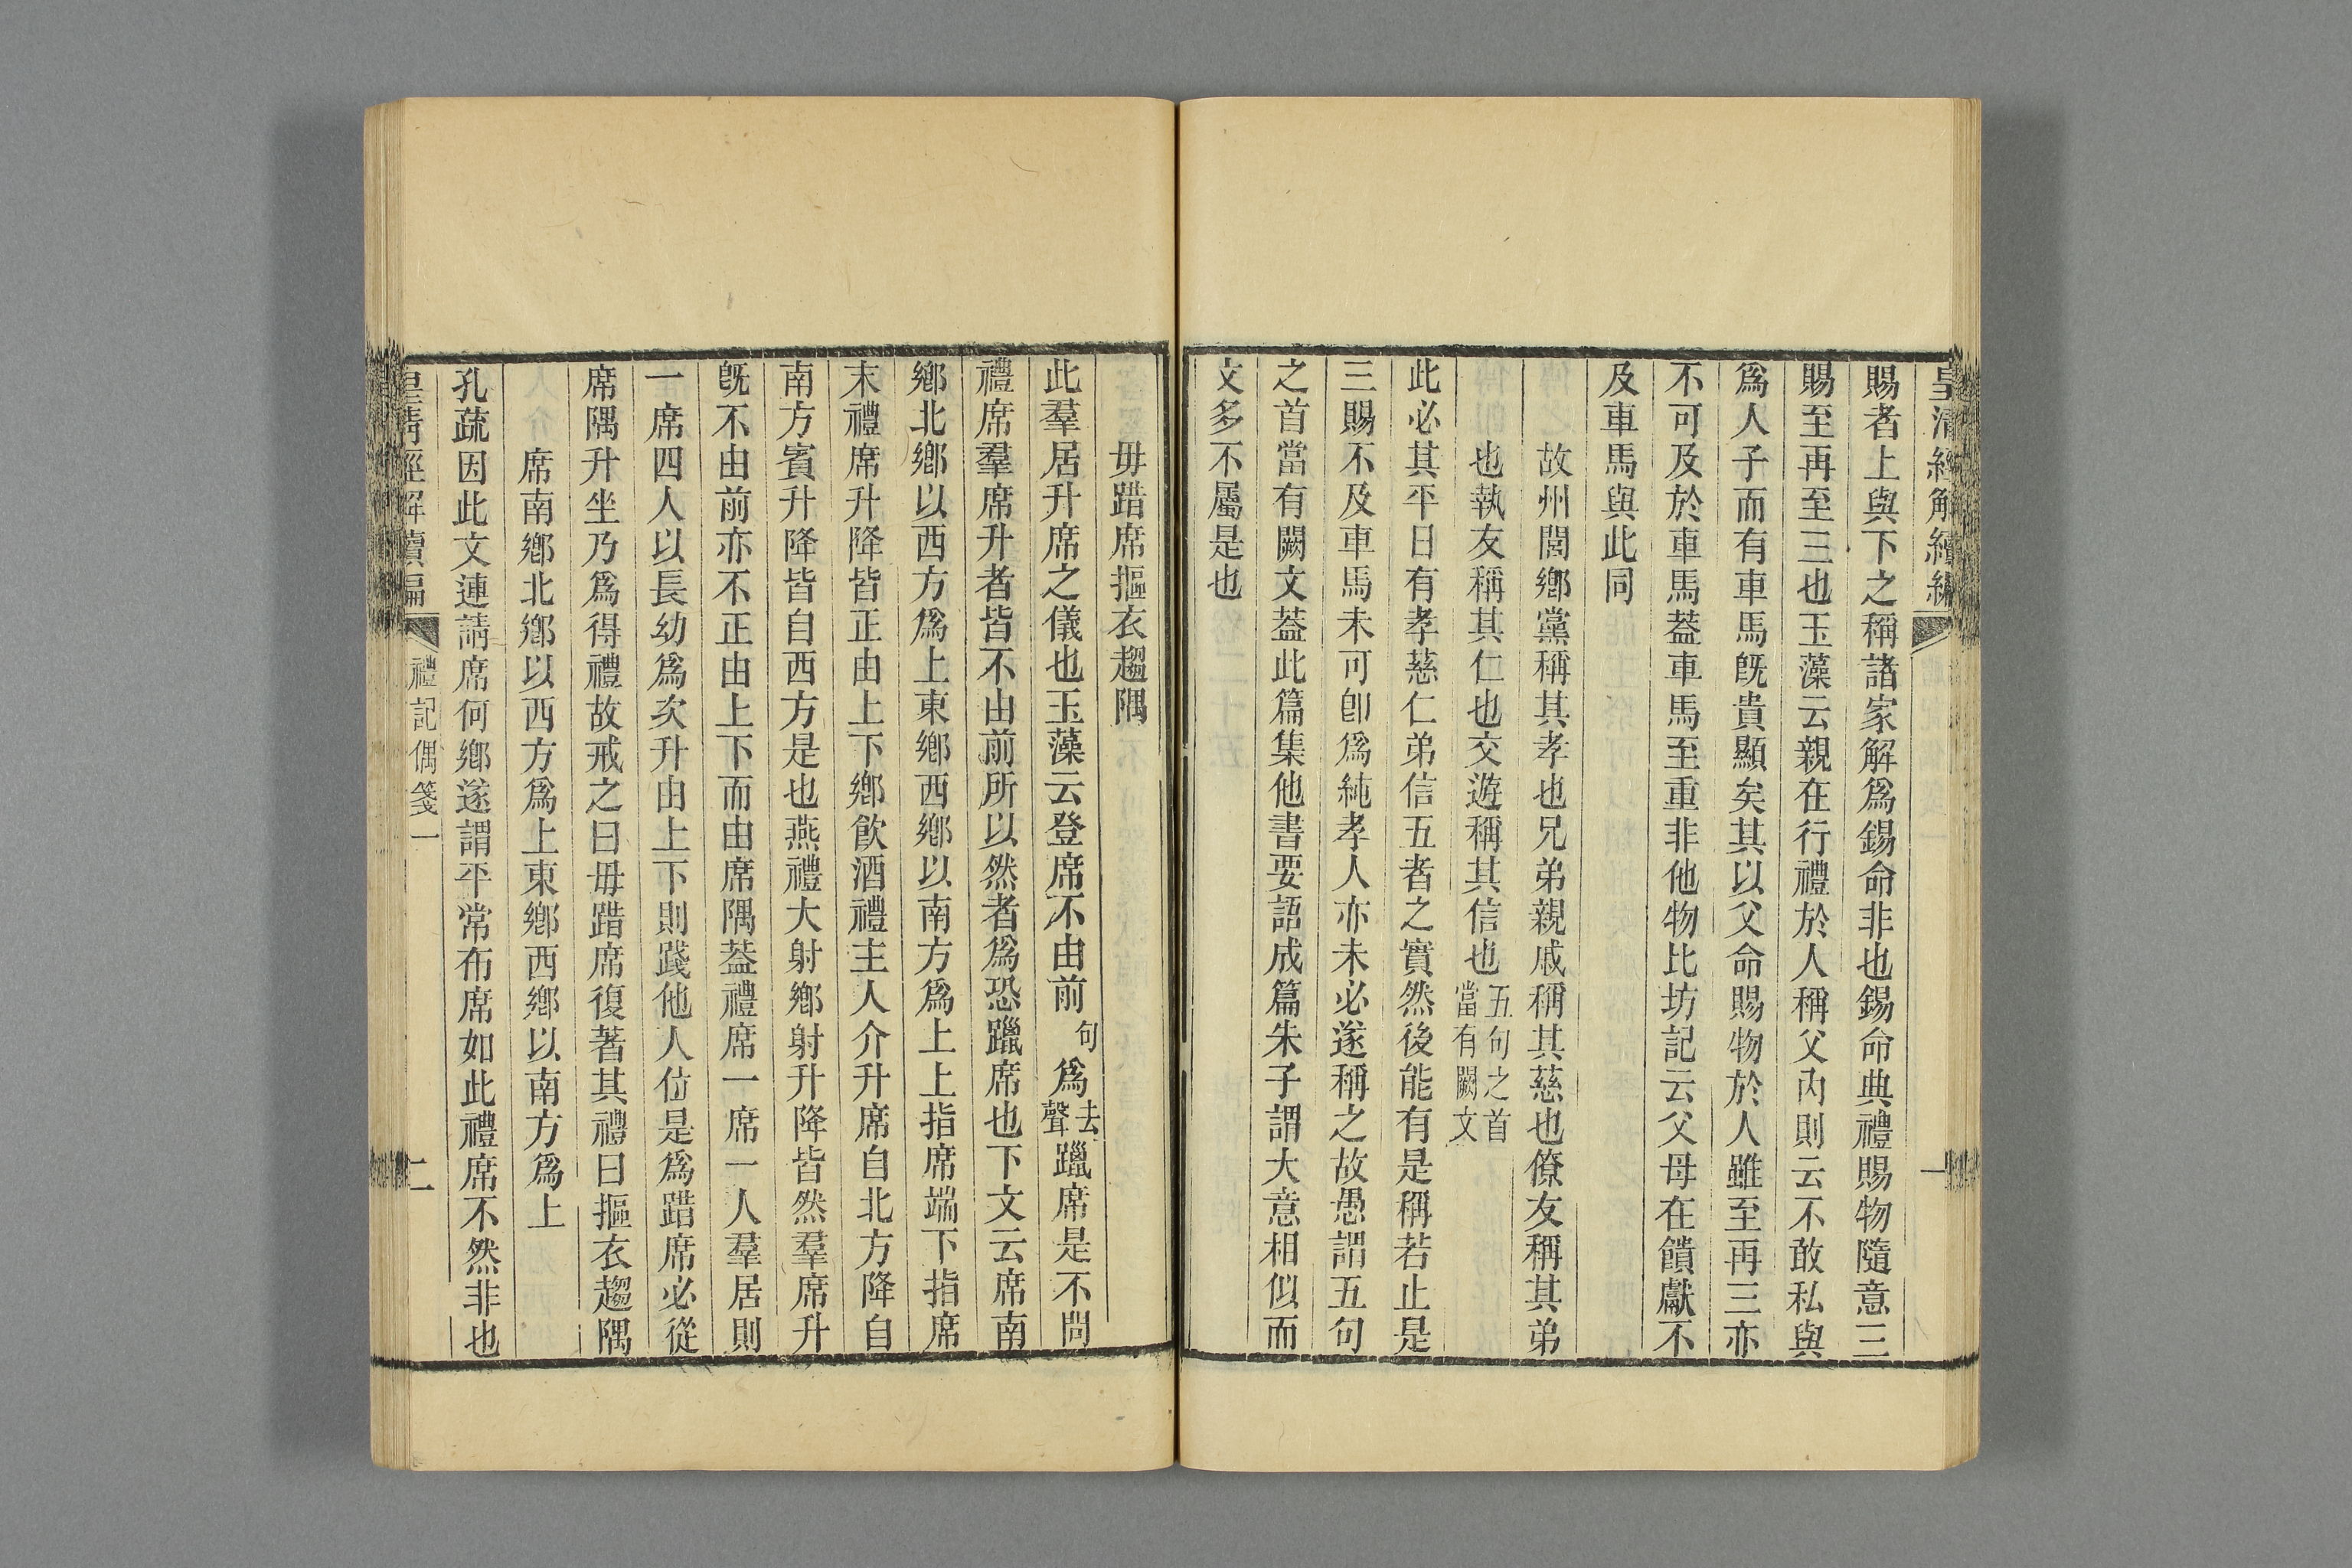 皇清經解續編 一
賜者上與下之稱諸家解爲錫命非也錫命典禮賜物隨意三
賜至再至三也玉藻云親在行禮於人稱父內則云不敢私與
爲人子而有車馬旣貴顯矣其以父命賜物於人雖至再三亦
不可及於車馬葢車馬至重非他物比坊記云父母在饋獻不
及車馬與此同
故州閭鄉黨稱其孝也兄弟親戚稱其慈也僚友稱其弟
也執友稱其仁也交遊稱其信也五句之首當有闕文
此必其平日有孝慈仁弟信五者之實然後能有是稱若止是
三賜不及車馬未可卽爲純孝人亦未必遂稱之故愚謂五句
之首當有闕文葢此篇集他書要語成篇朱子謂大意相似而
文多不屬是也
毋踖席摳衣趨隅
此羣居升席之儀也玉藻云登席不由前句爲去聲躐席是不問
禮席羣席升者皆不由前所以然者爲恐躐席也下文云席南
鄉北鄉以西方爲上東鄉西鄉以南方爲上上指席端下指席
末禮席升降皆正由上下鄉飮酒禮主人介升席自北方降自
南方賓升降皆自西方是也燕禮大射鄉射升降皆然羣席升
旣不由前亦不正由上下而由席隅葢禮席一席一人羣居則
一席四人以長幼爲次升由上下則踐他人位是爲踖席必從
席隅升坐乃爲得禮故戒之曰毋踖席復著其禮曰摳衣趨隅
席南鄉北鄉以西方爲上東鄉西鄉以南方爲上
孔疏因此文連請席何鄉遂謂平常布席如此禮席不然非也
皇清經解續編 禮記偶箋一 二